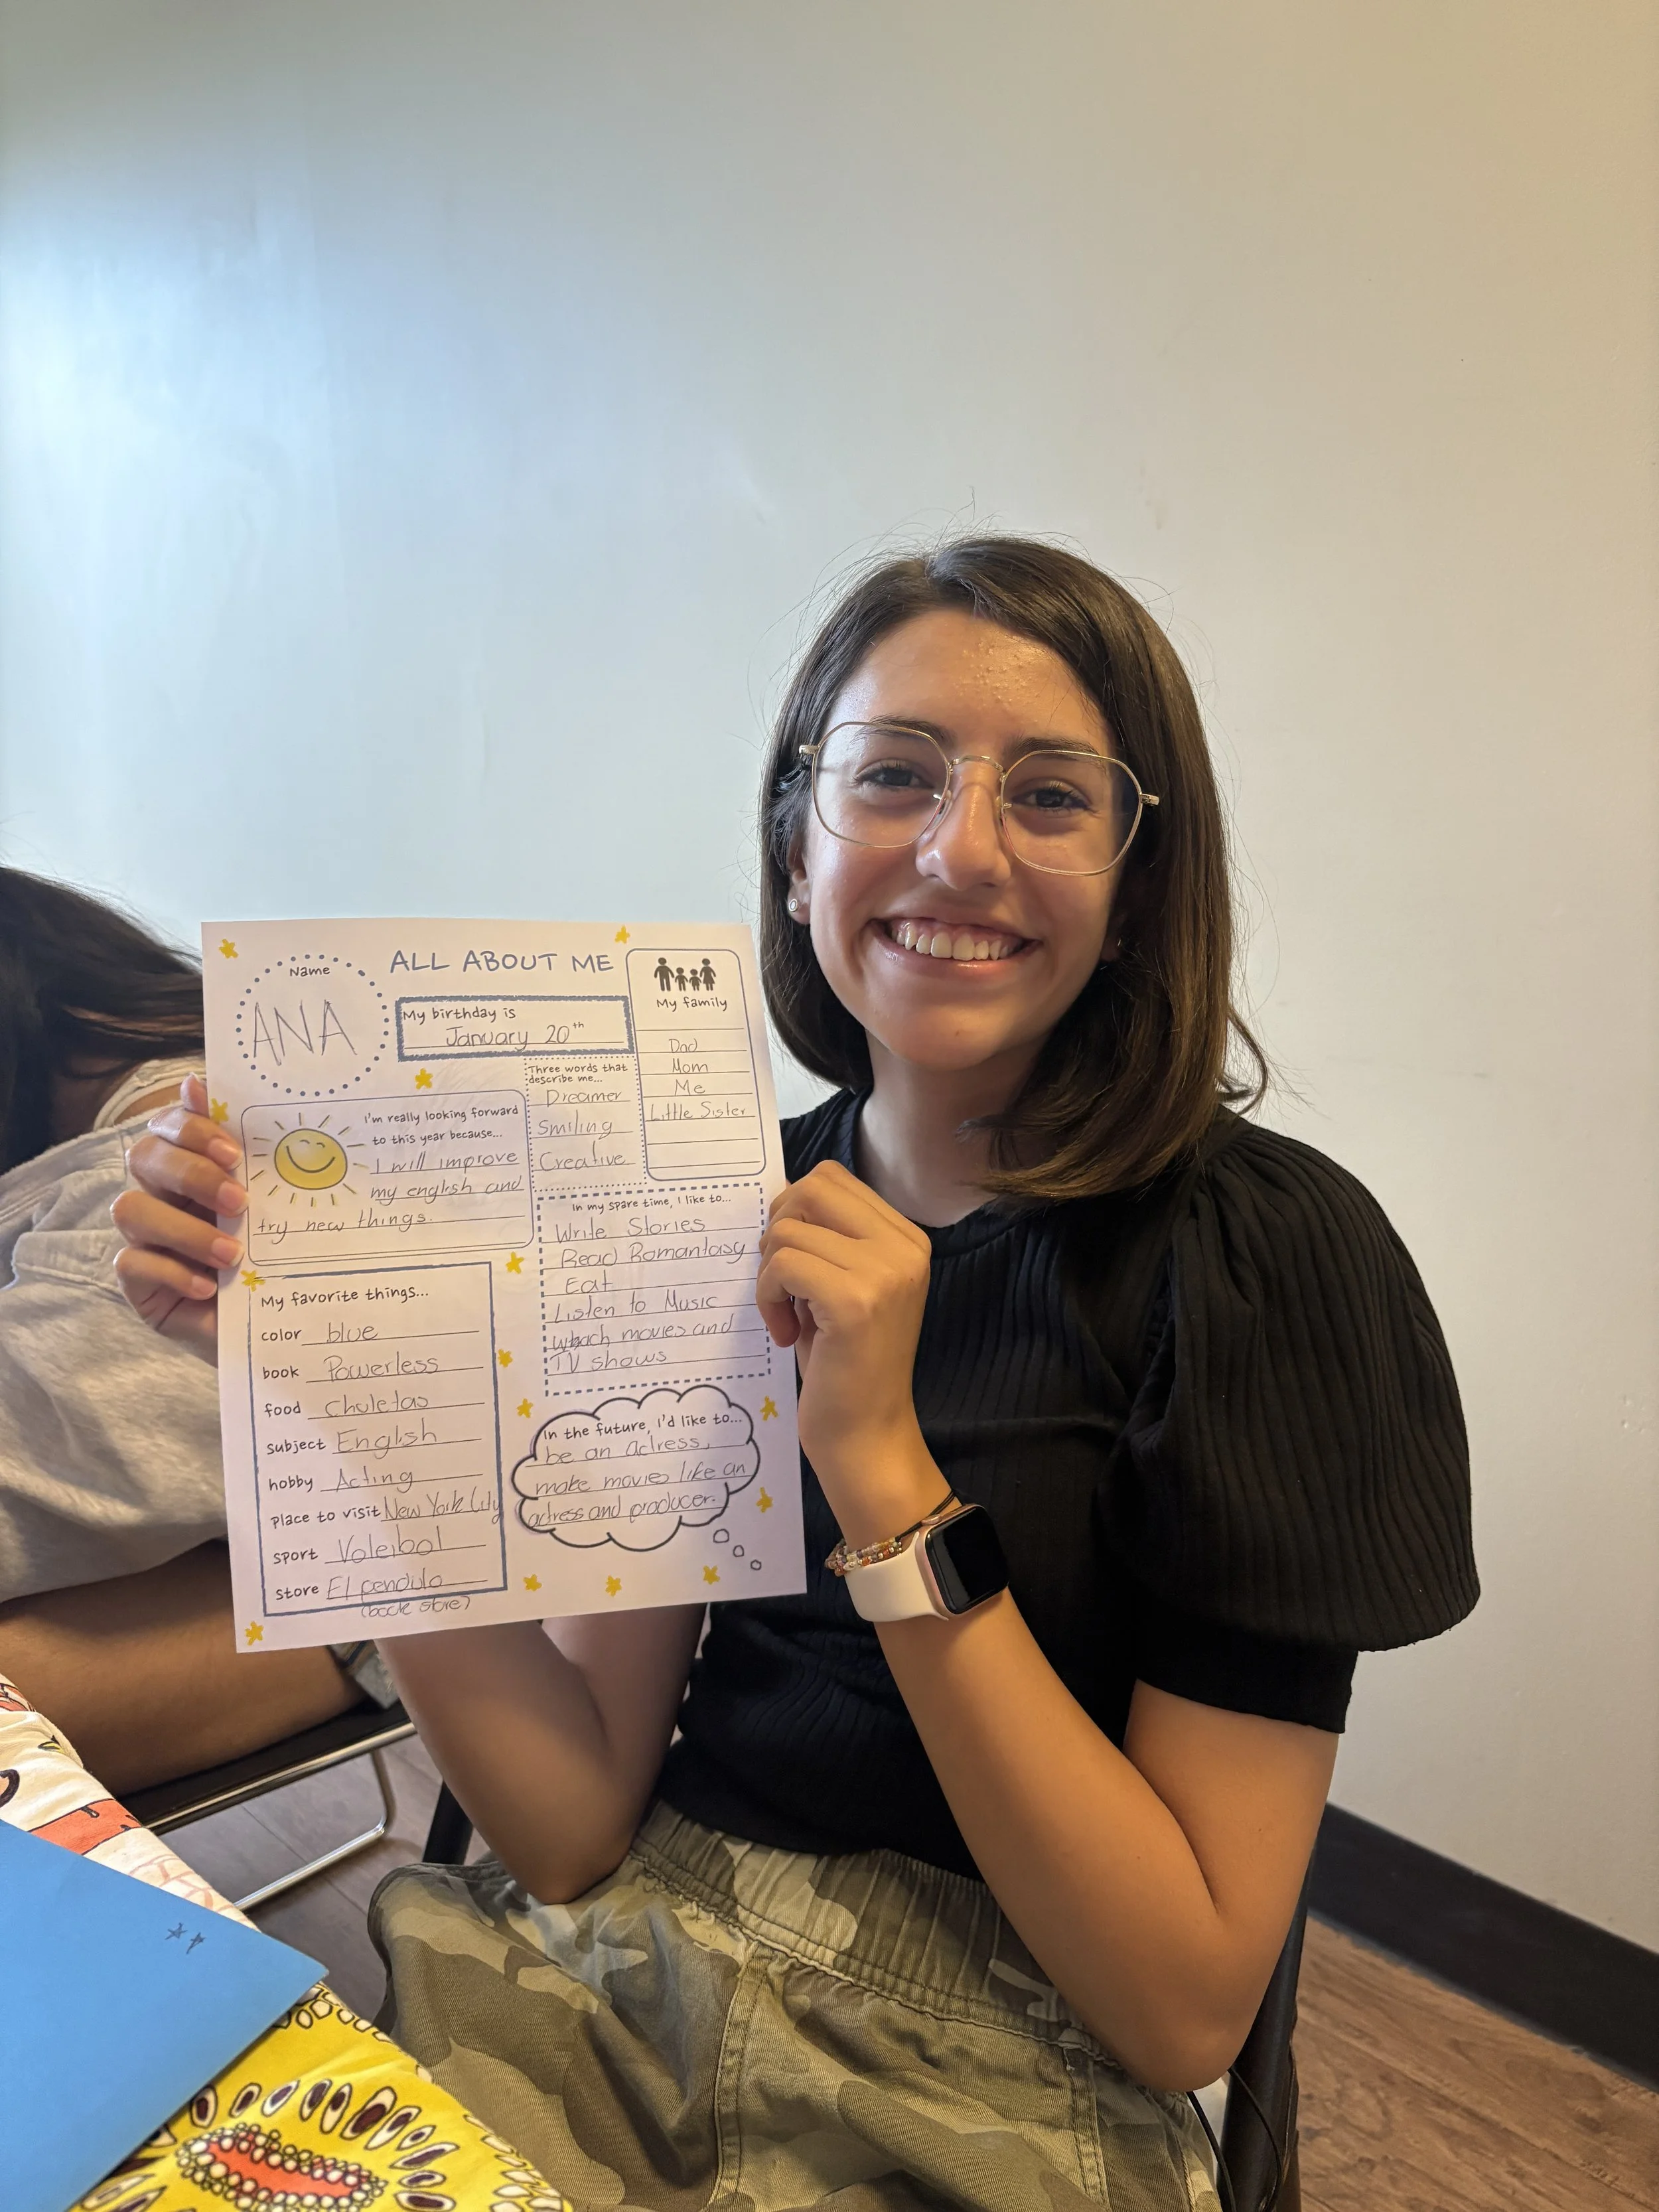 ALL ABOUT ME
Name
ANA
My birthday is
January 20th
My family
Dad
Mom
Me
Little Sister
Three words that
describe me...
Dreamer
Smiling
Creative
I'm really looking forward
to this year because...
I will improve
my english and
try new things.
In my spare time, I like to...
Write Stories
Read Romantasy
Eat
Listen to Music
movies and
TV shows
My favorite things...
color blue
book Powerless
food chuletas
subject English
hobby Acting
place to visit New York City
sport Voleibol
store El pendulo
(book store)
In the future, I'd like to...
be an actress,
make movies like an
actress and producer.